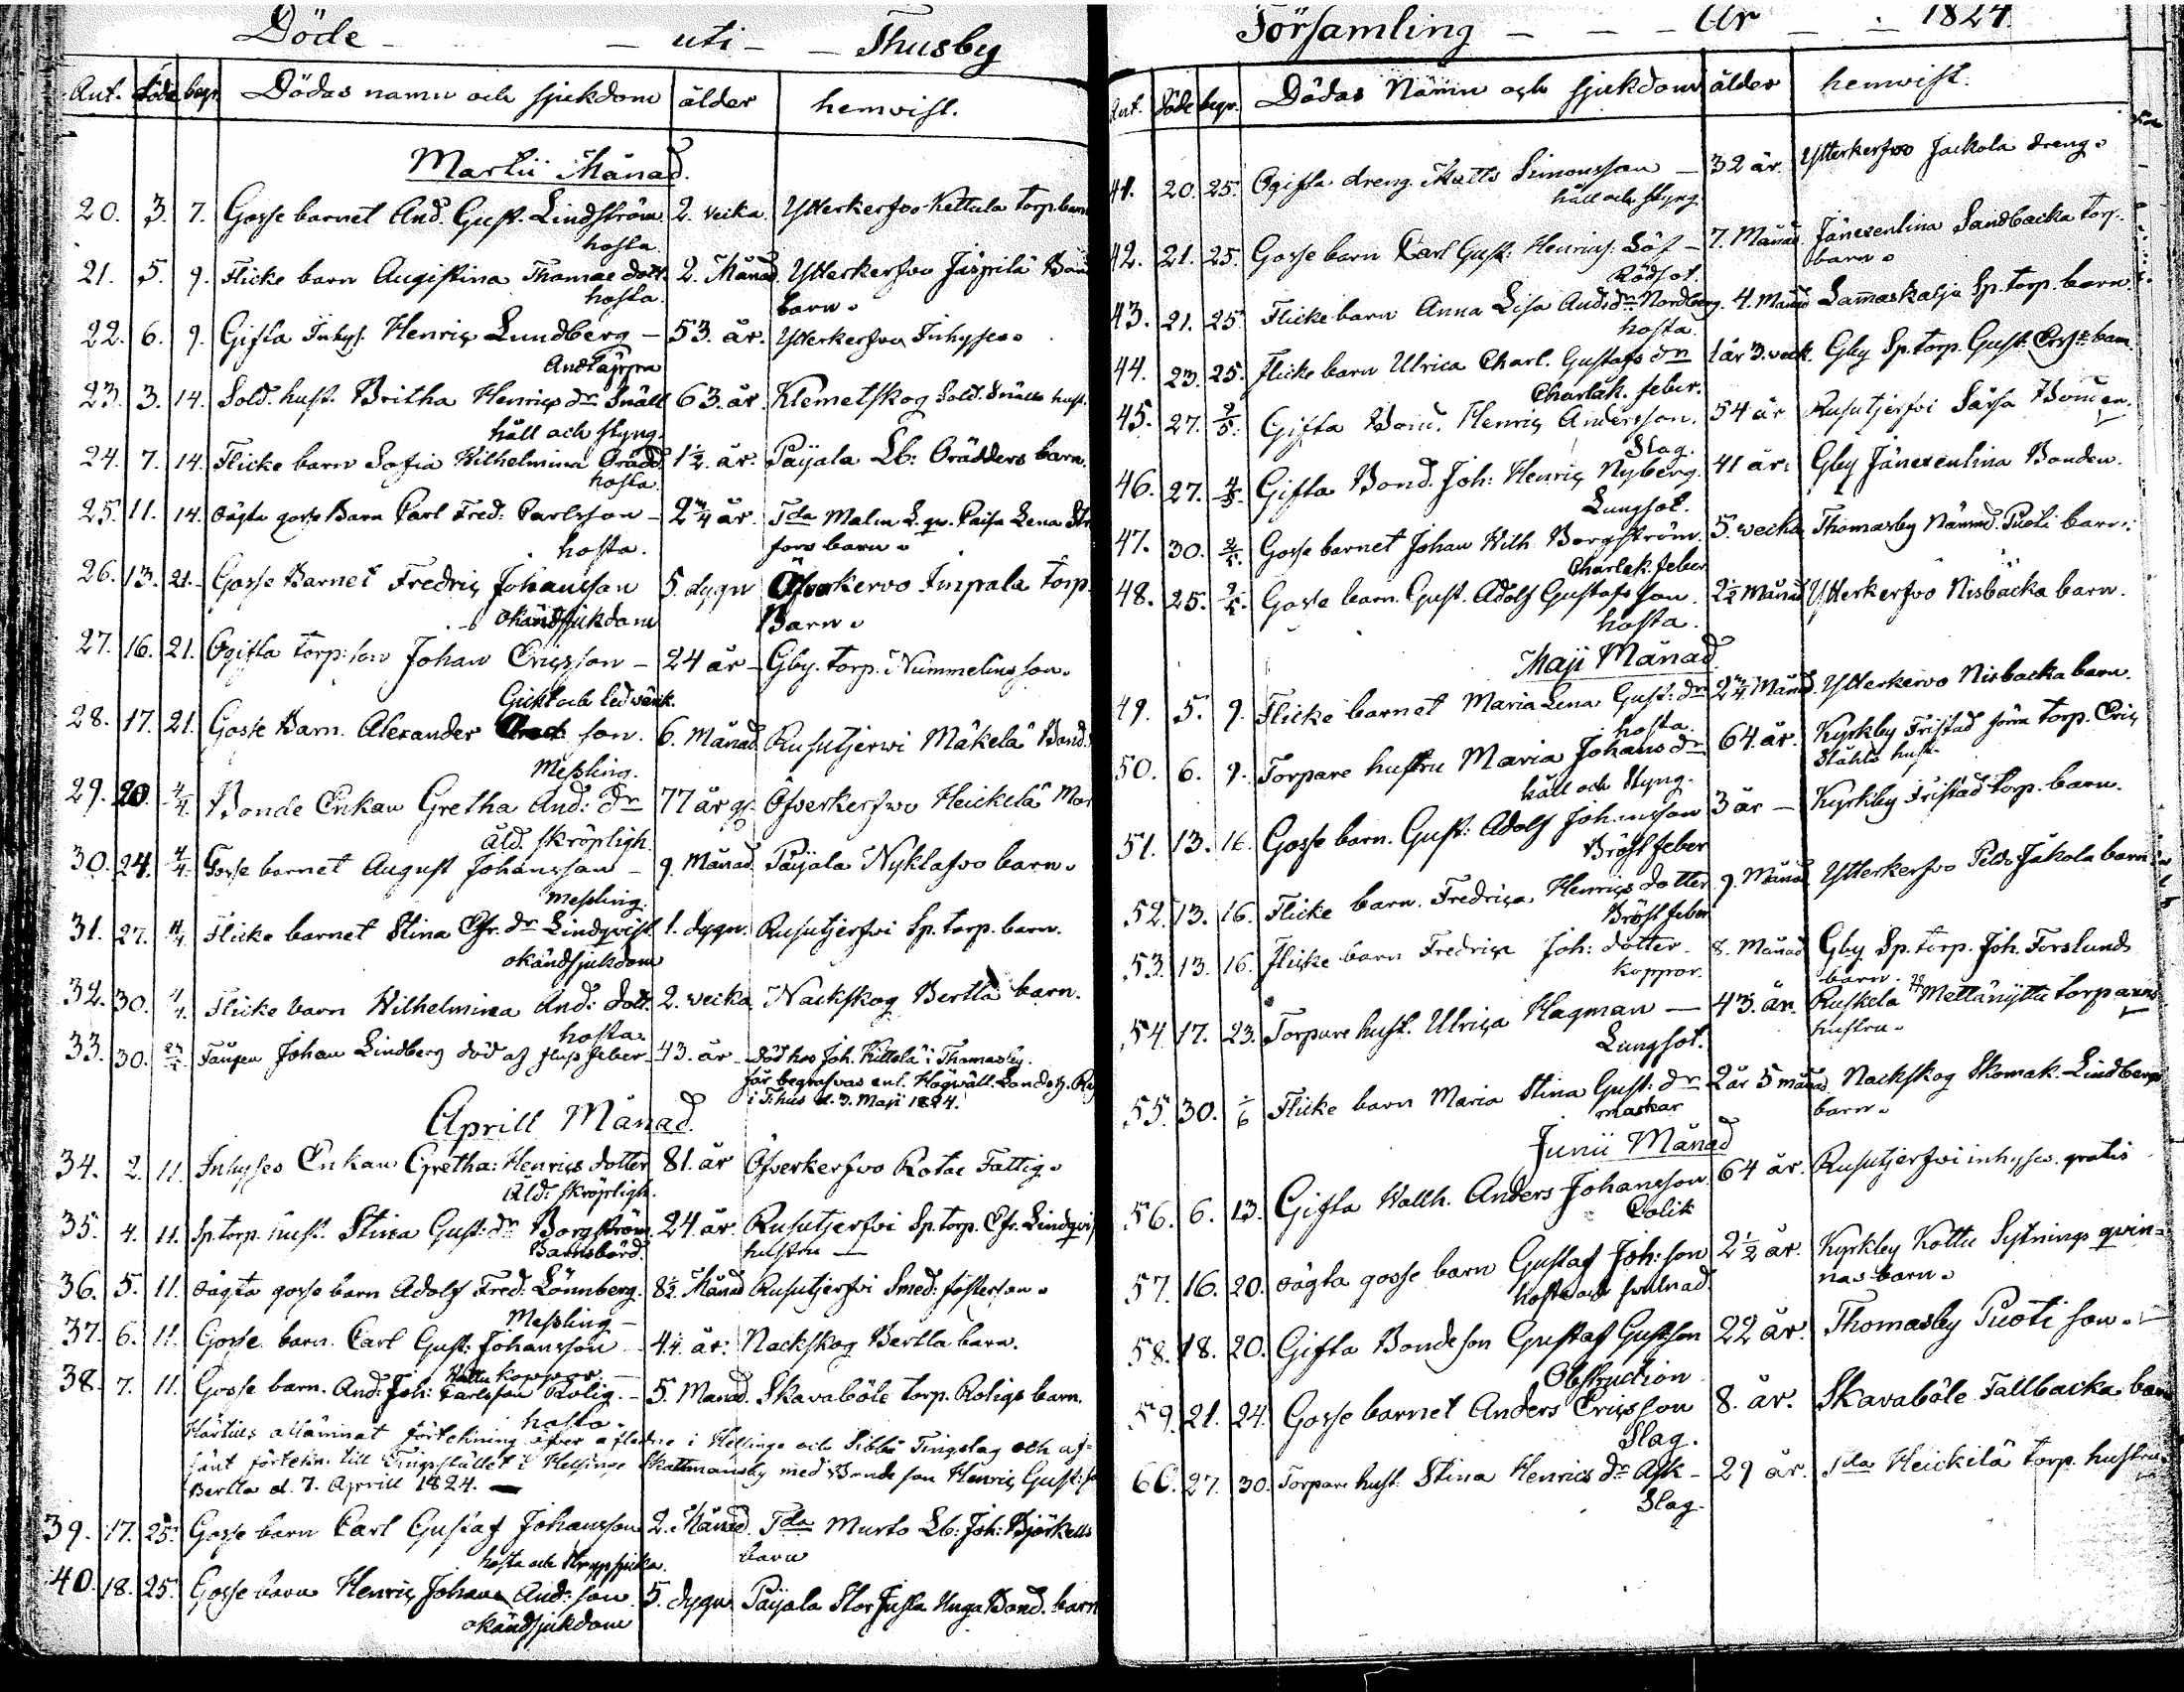 Döde uti Thusby
Ant. Döde begr. Dödas namn och sjukdom ålder hemvist.
Martii Månad.
20. 3. 7. Gosse barnet And. Gust. Lindström 2. veckа. Ytterkerfwo Kettula torp. barn
hosta.
21. 5. 9. Flicke barn Augistina Thomae dott. 2. Månad. Ytterkerfwo Jäspilä Bond
hosta. barn.
22. 6. 9. Gifta Inhys. Henric Lundberg - 53. år. Ytterkerfwo Inhyses.
Andtäppa
23. 3. 14. Sold. hust. Britha Henrics dr Snäll 63. år. Klemetskog Sold. Snälls hust.
håll och styng.
24. 7. 14. Flicke barn Sofia Wilhelmina Orädd 1½. år. Päijala Lb: Orädders barn.
hosta.
25. 11. 14. oägta gosse Barn Carl Fred. Carlsson - 2¾ år. Tda Malm L. qv. Caisa Lena
hosta. fors barn.
26. 13. 21. Gosse Barnet Fredric Johansson 5. dygn Öfverkervo Impala torp.
okänd sjukdom Barn.
27. 16. 21. Ogifta torp: son Johan Ericsson - 24 år - Gby. torp. Nummelins son.
Gickt och ledvärk.
28. 17. 21. Gosse Barn. Alexander son. 6. Månad Rusutjerwi Mäkelä Bond.
Messling.
29. 20. 4/4. Bonde Enkan Gretha And: dr 77 år Öfverkerfwo Heickelä Mor
Åld. skröpligh.
30. 24. 4/4. Gosse barnet August Johansson - 9. Månad. Päijala Nyklafwo barn.
messling.
31. 27. 4/4. Flicke barnet Stina Efr. dr Lindqvist. 1. dygn. Rusutjerfwi Sp. torp. barn.
okänd sjukdom
32. 30. 4/4. Flicke barn Wilhelmina And: dott. 2. vecka Nackskog Bertla barn.
hosta.
33. 30. Fången Johan Lindberg död af flussfeber 43. år död hos Joh. Kittelä i Thomasby.
får begrafvas enl. Högwäll. Landsh.
i Thus d. 3. Maji 1824.
Aprill Månad.
34. 2. 11. Inhyses Enkan Gretha: Henrics dotter 81. år Öfverkerfwo Rotae Fattig.
Åld: skröpligh.
35. 4. 11. Sp. torp. hust. Stina Gust: dr Borgström 24 år. Rusutjerfwi Sp. torp. Efr. Lindqvist
Barnsbörd. hustru
36. 5. 11. oägta gosse barn Adolf Fred: Lönnberg. 8½. Månad Rusutjerfwi Smed. fosterson.
Messling -
37. 6. 11. Gosse barn. Carl Gust: Johansson 4¼. år. Nackskog Bertla barn.
koppor.
38. 7. 11. Gosse barn. And. Joh: Carlsson Rolig. - 5. Månad. Skavaböle torp. Roligs barn.
hosta.
Härtils allämnat förtekning öfver afledne i Helsinge och Sibbå Tingslag och af=
sänt förtekn. till Tingstället i Helsinge Skattmansby med Bonde son Henric Gust: s
Bertla d. 7. Aprill 1824.
39. 17. 25. Gosse barn Carl Gustaf Johansson 2. Månad. Tda Murto Lb: Joh: Björkells
hosta och barn
40. 18. 25. Gosse barn Henric Johan And: son. 5. dygn Päijala Stor Jusla Unga Bond. barn
okänd sjukdom
Församling År 1824.
Ant. Döde begr. Dödas Namn och sjukdom ålder hemvist.
41. 20. 25. Ogifta dreng. Matts Simonsson - 32 år. Ytterkerfwo Jackola dreng.
håll och styng
42. 21. 25. Gosse barn Carl Gust: Henrics: Löf - 7. Månad Jänexenlina Sandbacka torp.
Rödsot. barn.
43. 21. 25 Flicke barn Anna Lisa Ands dr Nordberg. 4. Månad Lammaskalja Sp. torp. barn.
hosta.
44. 23. 25. Flicke barn Ulrica Charl. Gustafs dr 1 år 3. veck. Gby Sp. torp. Gust. barn
Charlak. feber.
45. 27. 2/5. Gifta Bond. Henric Andersson. 54 år Rusutjerfwi Särsa Bonden.
Slag.
46. 27. Gifta Bond. Joh: Henric Nyberg. 41 år. Gby Jänexenlina Bonden.
Lungsot.
47. 30. 2/5. Gosse barnet Johan Wilh. Borgström. 5. vecka Thomasby Nämnd. Puoti barn.
Charlak. feber
48. 25. 2/5. Gosse barn. Gust. Adolf Gustafs son. 2½ Månad Ytterkerfwo Nisbacka barn.
hosta.
Maji Månad
49. 5. 9. Flicke barnet Maria Lena Gust: dr 2¾ Månd. Ytterkervo Nisbacka barn.
hosta.
50. 6. 9. Torpare hustru Maria Johans dr 64. år. Kyrkby Fristad förra torp. Eric
håll och styng. Ståhls hust.
51. 13. 16. Gosse barn. Gust: Adolf Johansson 3 år - Kyrkby Fristad torp. barn.
Bröst feber
52. 13. 16. Flicke barn. Fredrica Henrics dotter 9. Månad Ytterkerfwo Peldo Jakola barn
Bröst feber
53. 13. 16. Flicke barn Fredrica Joh: dotter. 8. Månad Gby Sp. torp. Joh. Forslunds
koppor. barn.
54. 17. 23. Torpare hust. Ulrica Hagman - 43. år. Ruskela Mettänyttu torparens
Lungsot. hustru.
55. 30. 1/6 Flicke barn Maria Stina Gust: dr 2 år 5 månad Nackskog Skomak. Lindbergs
maskar barn.
Junii Månad
56. 6. 13. Gifta Wallh. Anders Johansson 64 år. Rusutjerfwi inhyses. gratis
Colik
57. 16. 20. oägta gosse barn Gustaf Joh: son 2½ år. Kyrkby Kottu Sytnings qvin=
hosta och svulnad nas barn.
58. 18. 20. Gifta Bondeson Gustaf Gustson 22 år. Thomasby Puoti son.
Obstruction
59. 21. 24. Gosse barnet Anders Ericsson 8. år. Skavaböle Tallbacka barn
Slag.
60. 27. 30. Torpare hust. Stina Henrics dr Ask - 29 år. Tda Heickilä torp. hustru.
Slag.